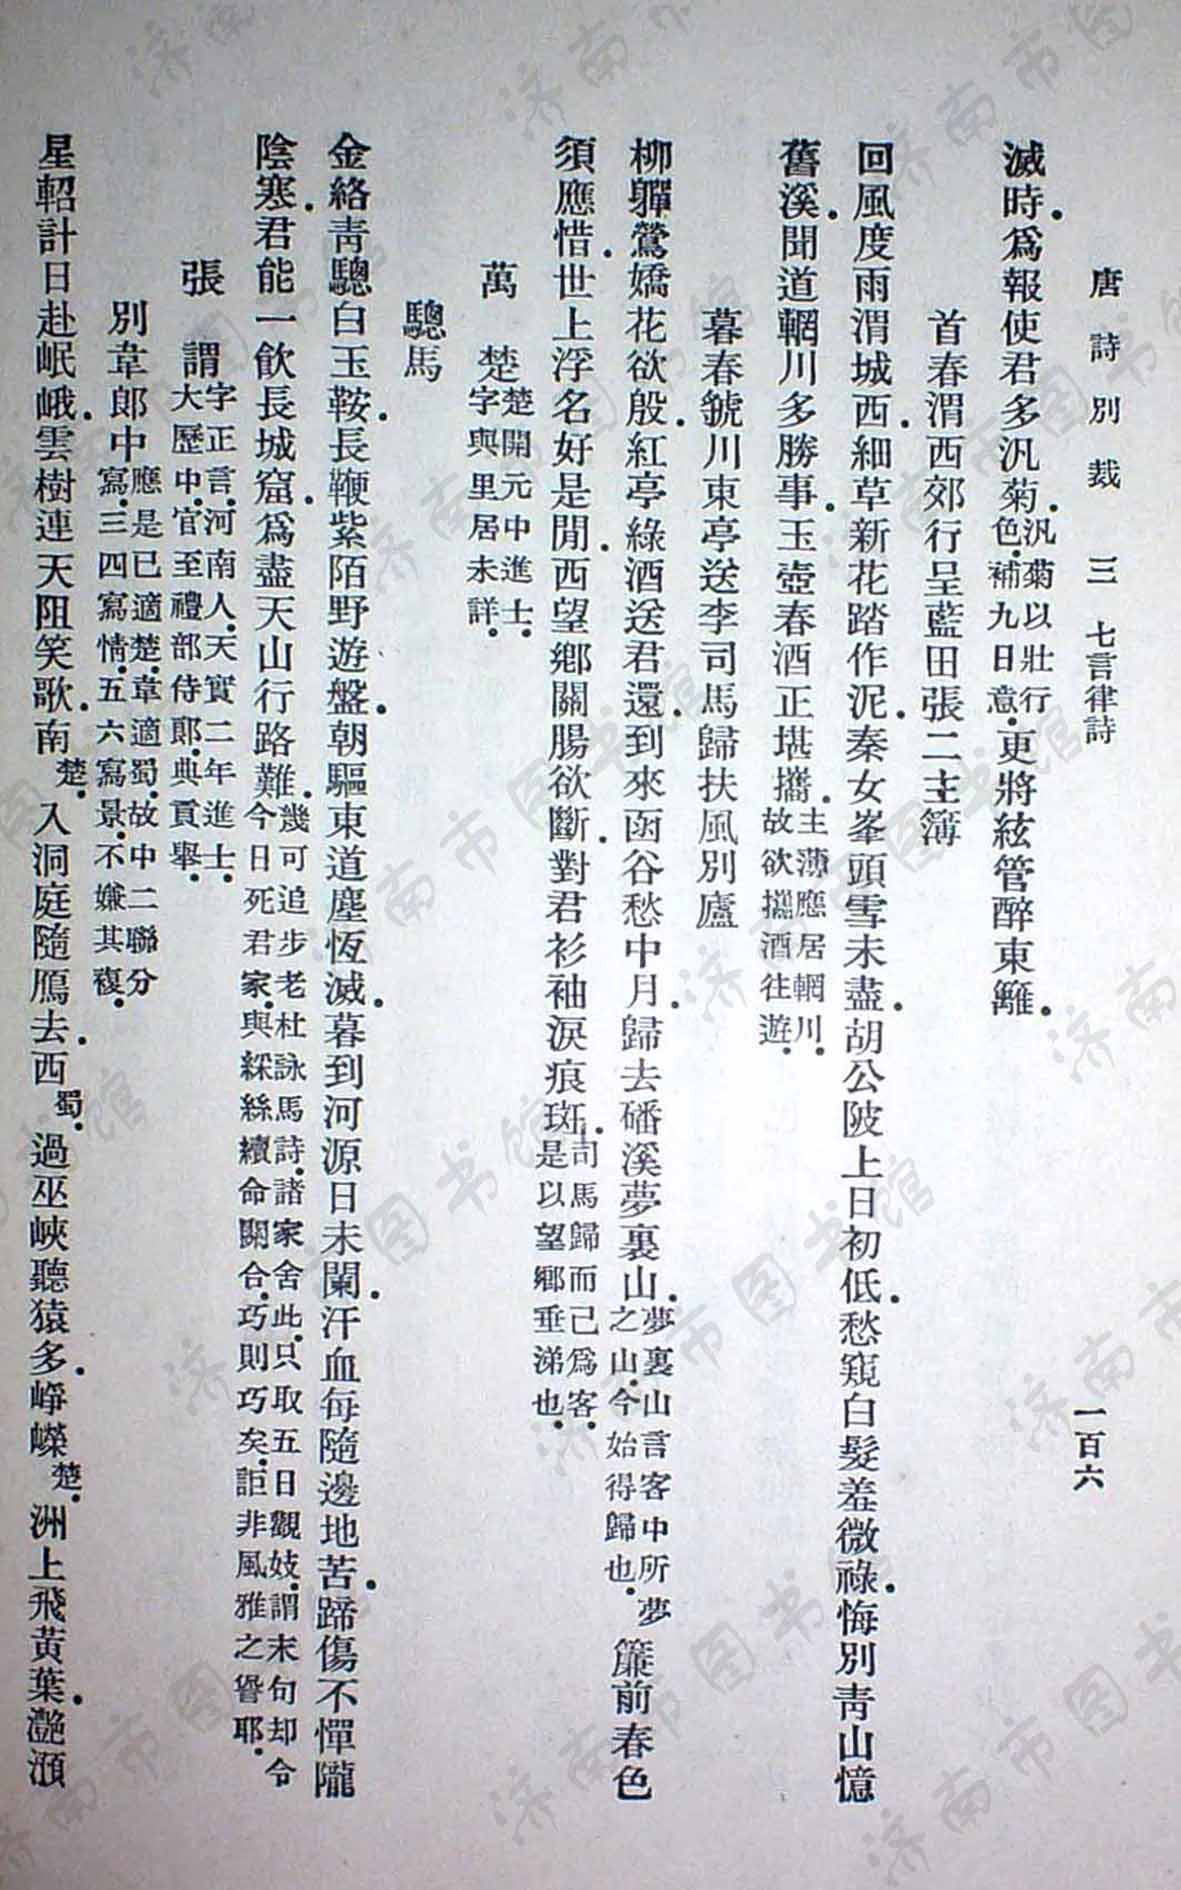 唐詩別裁 三 七言律詩 一百六
滅時．爲報使君多汎菊．汎菊以壯行色．補九日意．更將絃管醉東籬．
首春渭西郊行呈藍田張二主簿
回風度雨渭城西．細草新花踏作泥．秦女峯頭雪未盡．胡公陂上日初低．愁窺白髮羞微祿．悔別青山憶
舊溪．聞道輞川多勝事．玉壺春酒正堪攜．主薄應居輞川．故欲攜酒往遊．
暮春虢川東亭送李司馬歸扶風別廬
柳嚲鶯嬌花欲殷．紅亭綠酒送君還．到來函谷愁中月．歸去磻溪夢裏山．夢裏山言客中所夢之山．今始得歸也．簾前春色
須應惜．世上浮名好是閒．西望鄉關腸欲斷．對君衫袖淚痕斑．司馬歸而己爲客．是以望鄉垂涕也．
萬楚 楚開元中進士．字與里居未詳．
驄馬
金絡青驄白玉鞍．長鞭紫陌野遊盤．朝驅東道塵恆滅．暮到河源日未闌．汗血每隨邊地苦．蹄傷不憚隴
陰寒．君能一飲長城窟．爲盡天山行路難．幾可追步老杜詠馬詩．諸家舍此．只取五日觀妓．謂末句却令今日死君家．與綵絲續命關合．巧則巧矣．詎非風雅之眚耶．
張謂 字正言．河南人．天寶二年進士．大歷中．官至禮部侍郎．典貢舉．
別韋郎中 應是已適楚．韋適蜀．故中二聯分寫．三四寫情．五六寫景．不嫌其複．
星軺計日赴岷峨．雲樹連天阻笑歌．南楚．入洞庭隨鴈去．西蜀．過巫峽聽猿多．崢嶸楚．洲上飛黃葉．灩澦